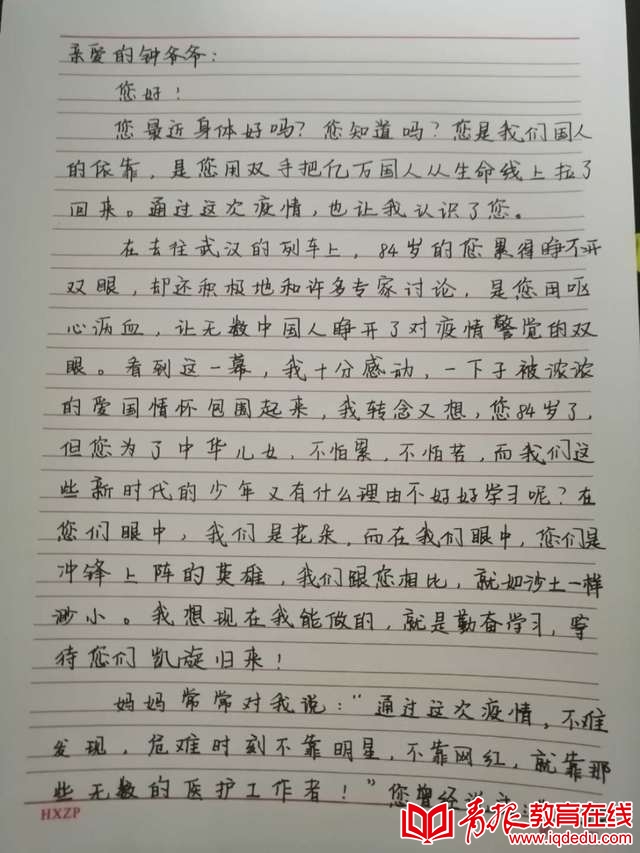 亲爱的钟爷爷：
您好！
您最近身体好吗？您知道吗？您是我们国人
的依靠，是您用双手把亿万国人从生命线上拉了
回来。通过这次疫情，也让我认识了您。
在去往武汉的列车上，84岁的您累得睁不开
双眼，却还积极地和许多专家讨论，是您用呕
心沥血，让无数中国人睁开了对疫情警觉的双
眼。看到这一幕，我十分感动，一下子被浓浓
的爱国情怀包围起来，我转念又想，您84岁了，
但您为了中华儿女，不怕累，不怕苦，而我们这
些新时代的少年又有什么理由不好好学习呢？在
您们眼中，我们是花朵，而在我们眼中，您们是
冲锋上阵的英雄，我们跟您相比，就如沙土一样
渺小。我想现在我能做的，就是勤奋学习，等
待您们凯旋归来！
妈妈常常对我说：“通过这次疫情，不难
发现，危难时刻不靠明星，不靠网红，就靠那
些无数的医护工作者！”您曾经说
HXZP
青报教育在线
www.iqdedu.com